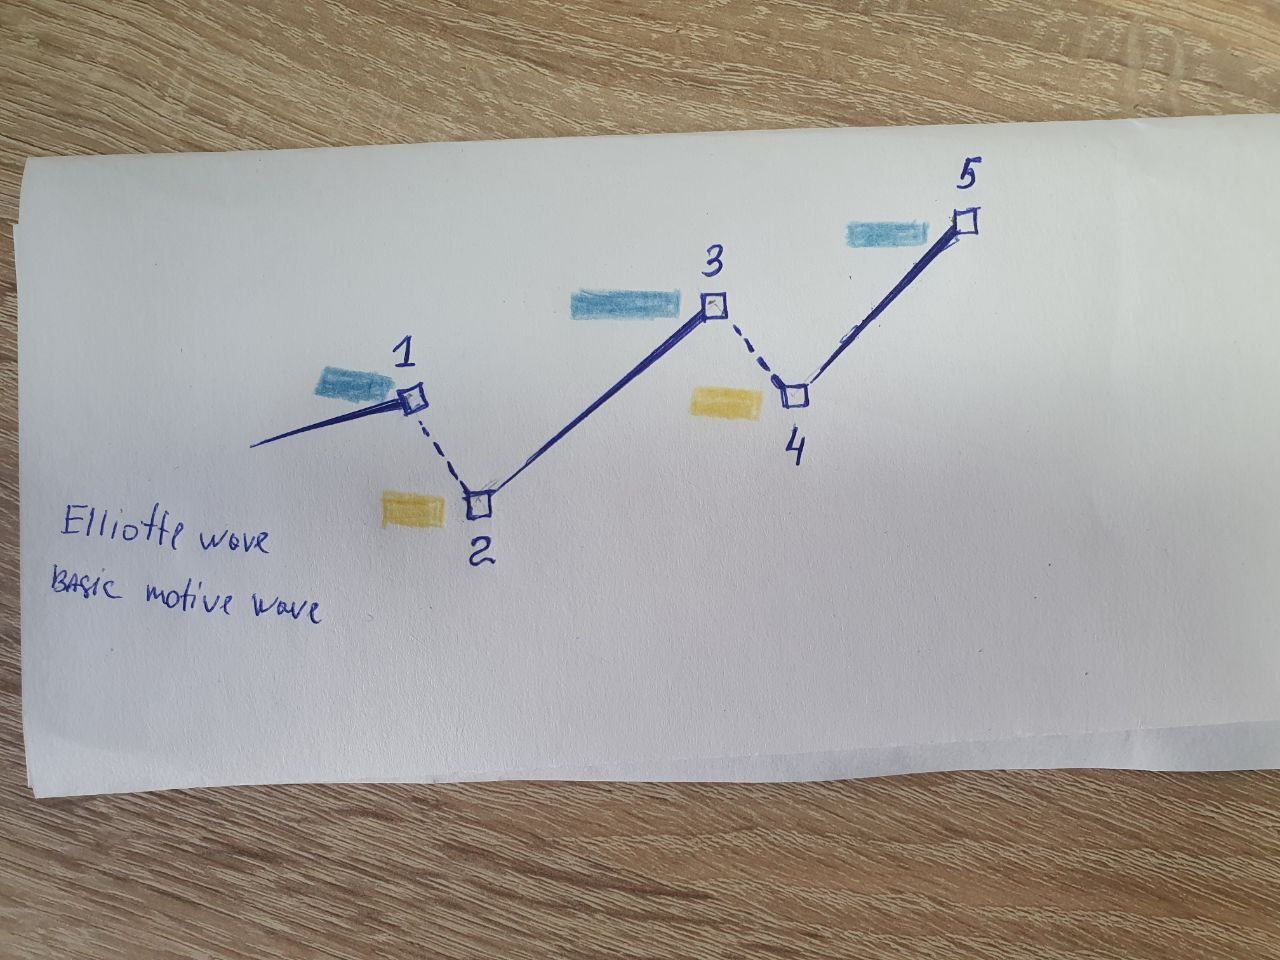 5
3
1
4
2
Elliotte wave
BASic motive wave